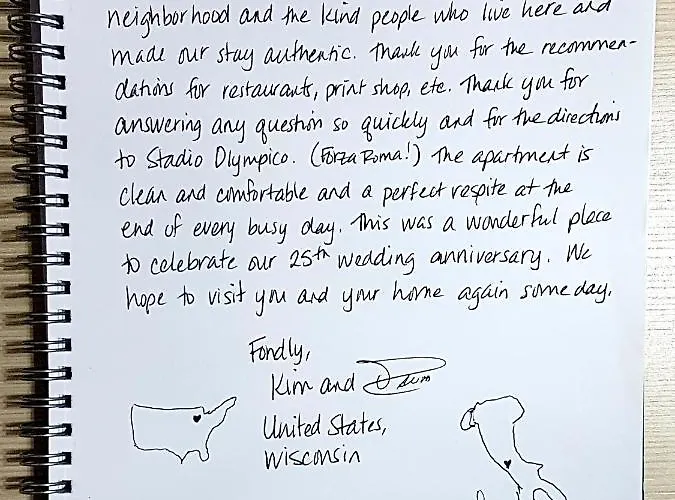 neighborhood and the kind people who live here and
made our stay authentic. Thank you for the recommen-
dations for restaurants, print shop, etc. Thank you for
answering any question so quickly and for the directions
to Stadio Olympico. (Forza Roma!) The apartment is
clean and comfortable and a perfect respite at the
end of every busy day. This was a wonderful place
to celebrate our 25th wedding anniversary. We
hope to visit you and your home again some day.
Fondly,
Kim and
United States,
Wisconsin